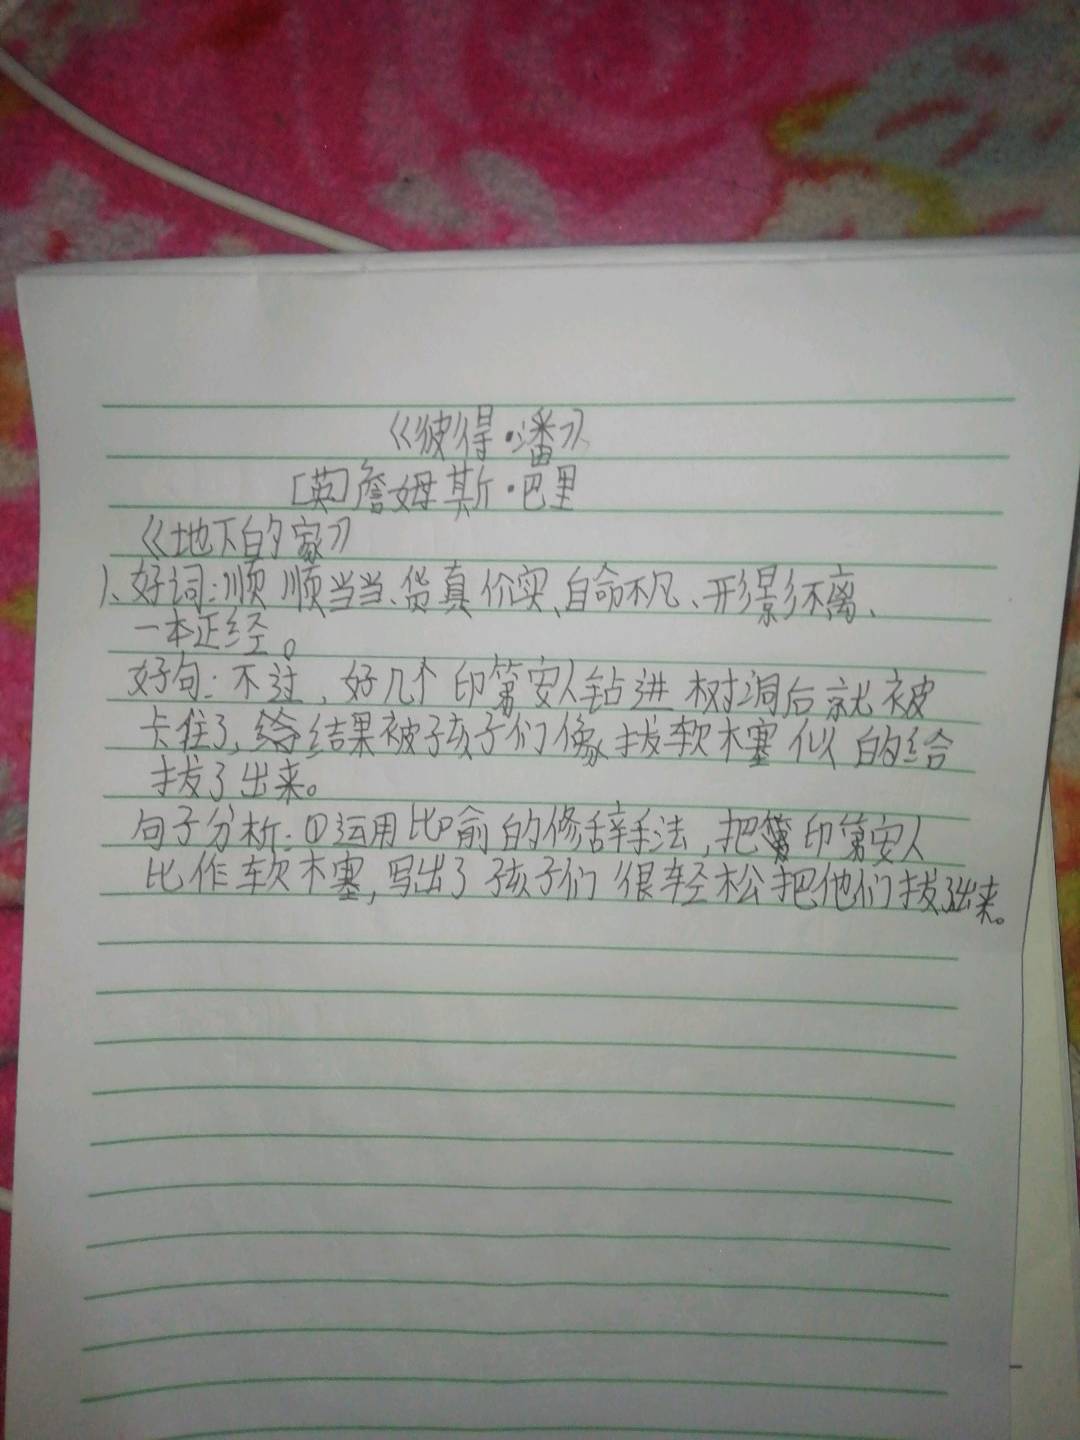 《彼得·潘》
[英]詹姆斯·巴里
《地下的家》
1、好词:顺顺当当、货真价实、自命不凡、形影不离、
一本正经。
好句:不过,好几个印第安人钻进树洞后就被
卡住了,结果被孩子们像拔软木塞似的给
拔了出来。
句子分析:①运用比喻的修辞手法,把印第安人
比作软木塞,写出了孩子们很轻松把他们拔了出来。